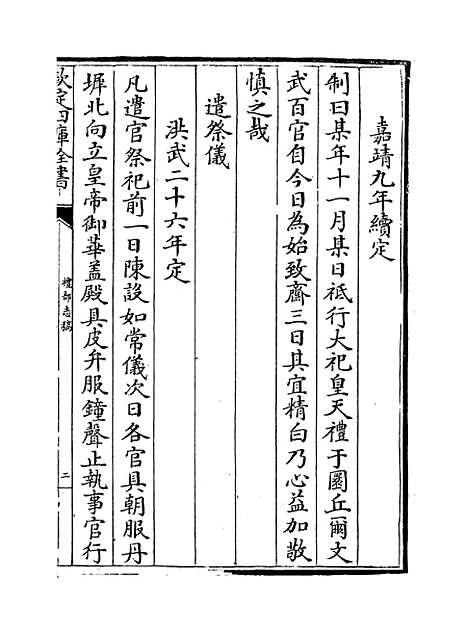 嘉靖九年續定
制曰某年十一月某日祗行大祀皇天禮于圜丘爾文
武百官自今日為始致齋三日其宜精白乃心益加敬
慎之哉
遣祭儀
洪武二十六年定
凡遣官祭祀前一日陳設如常儀次日各官具朝服丹
墀北向立皇帝御華盖殿具皮弁服鐘聲止執事官行
欽定四庫全書
禮部志稿
二